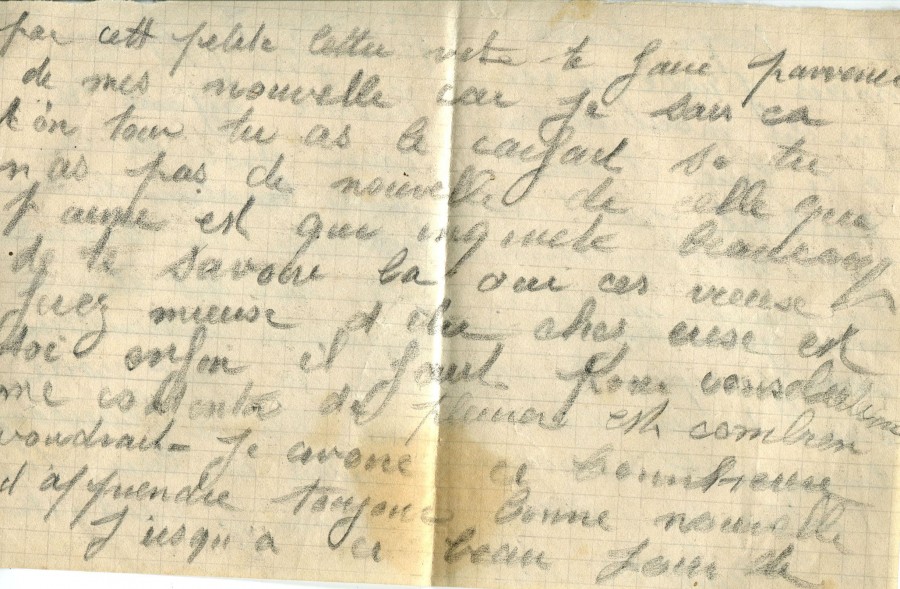 par cett petite lettre vite te faire parvenir
de mes nouvelle car je sais ca
ton tour tu as le cafart se tu
n as pas de nouvelle de celle que
t aime est qui inquiete beaucoup
de te savoir la oui ces vieuse
serez mieuse d etre ches euse est
toi enfin il faut pour consolation
me contentes de pleurer est combien
voudrait je avoire ce bonnheure
d apprendre toujour bonne nouvelle
J usqu a ce beau jour de